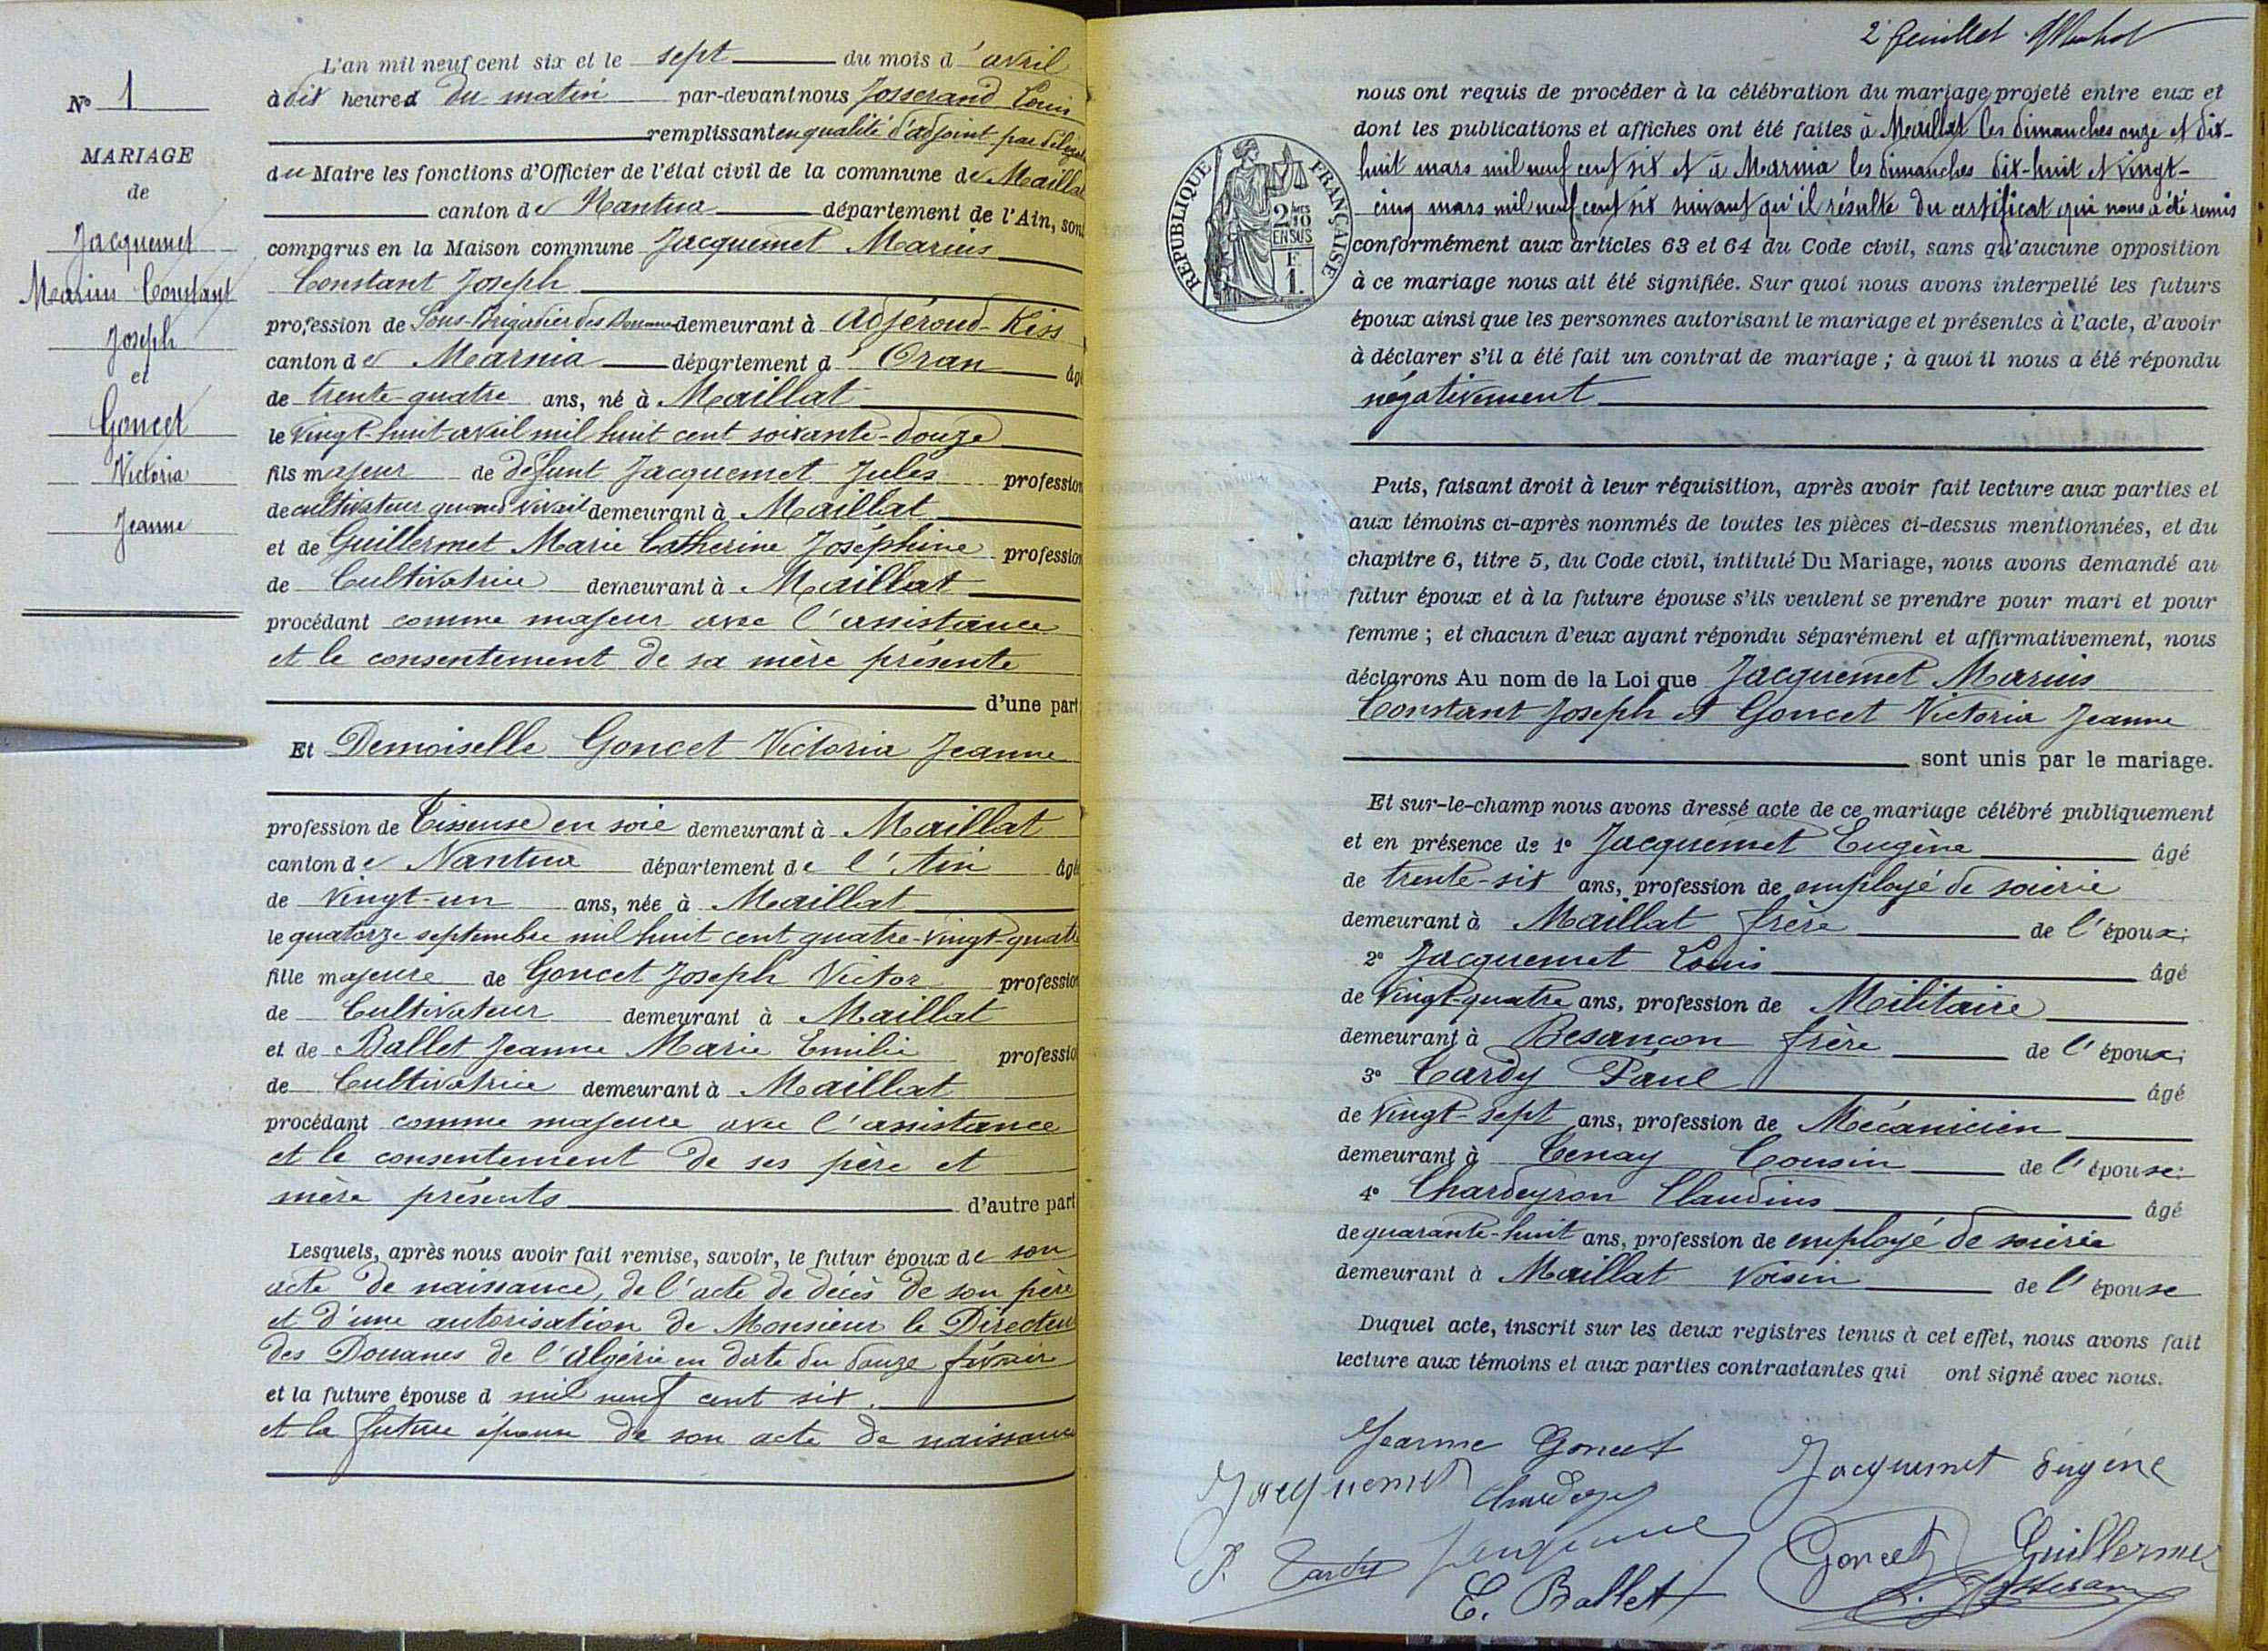 N° 1
MARIAGE
de
Jacquemet
Marius Constant
Joseph
et
Goncet
Victoria
Jeanne
L'an mil neuf cent six et le sept du mois d'avril
à dix heures du matin par-devant nous Josserand Louis
remplissant en qualité d'adjoint par
du Maire les fonctions d'Officier de l'état civil de la commune de Maillat
canton de Nantua département de l'Ain, sont
comparus en la Maison commune Jacquemet Marius
Constant Joseph
profession de Sous-Brigadier des Douanes demeurant à Adjéroud-Kiss
canton de Marnia département d'Oran âgé
de trente-quatre ans, né à Maillat
le vingt-huit avril mil huit cent soixante-douze
fils majeur de défunt Jacquemet Jules profession
de cultivateur quand vivait demeurant à Maillat
et de Guillermet Marie Catherine Joséphine profession
de Cultivatrice demeurant à Maillat
procédant comme majeur avec l'assistance
et le consentement de sa mère présente
d'une part
Et Demoiselle Goncet Victoria Jeanne
profession de Tisseuse en soie demeurant à Maillat
canton de Nantua département de l'Ain âgée
de vingt-un ans, née à Maillat
le quatorze septembre mil huit cent quatre-vingt-quatre
fille majeure de Goncet Joseph Victor profession
de Cultivateur demeurant à Maillat
et de Ballet Jeanne Marie Emilie profession
de Cultivatrice demeurant à Maillat
procédant comme majeure avec l'assistance
et le consentement de ses père et
mère présents d'autre part
Lesquels, après nous avoir fait remise, savoir, le futur époux de son
acte de naissance, de l'acte de décès de son père
et d'une autorisation de Monsieur le Directeur
des Douanes de l'Algérie en date du douze février
et la future épouse d mil neuf cent six.
et la future épouse de son acte de naissance
2e feuillet
nous ont requis de procéder à la célébration du mariage projeté entre eux et
dont les publications et affiches ont été faites à Maillat les dimanches onze et dix-
huit mars mil neuf cent six et à Marnia les dimanches dix-huit et vingt-
cinq mars mil neuf cent six suivant qu'il résulte du certificat qui nous a été remis
RÉPUBLIQUE FRANÇAISE
2/10
EN SUS
1F
conformément aux articles 63 et 64 du Code civil, sans qu'aucune opposition
à ce mariage nous ait été signifiée. Sur quoi nous avons interpellé les futurs
époux ainsi que les personnes autorisant le mariage et présentes à l'acte, d'avoir
à déclarer s'il a été fait un contrat de mariage ; à quoi il nous a été répondu
négativement
Puis, faisant droit à leur réquisition, après avoir fait lecture aux parties et
aux témoins ci-après nommés de toutes les pièces ci-dessus mentionnées, et du
chapitre 6, titre 5, du Code civil, intitulé Du Mariage, nous avons demandé au
futur époux et à la future épouse s'ils veulent se prendre pour mari et pour
femme ; et chacun d'eux ayant répondu séparément et affirmativement, nous
déclarons Au nom de la Loi que Jacquemet Marius
Constant Joseph et Goncet Victoria Jeanne
sont unis par le mariage.
Et sur-le-champ nous avons dressé acte de ce mariage célébré publiquement
et en présence de 1° Jacquemet Eugène âgé
de trente-six ans, profession de employé de soierie
demeurant à Maillat frère de l'époux;
2° Jacquemet Louis âgé
de vingt-quatre ans, profession de Militaire
demeurant à Besançon frère de l'époux;
3° Tardy Paul âgé
de vingt-sept ans, profession de Mécanicien
demeurant à Tenay Cousin de l'épouse;
4° Chardeyron Claudius âgé
de quarante-huit ans, profession de employé de soierie
demeurant à Maillat voisin de l'épouse
Duquel acte, inscrit sur les deux registres tenus à cet effet, nous avons fait
lecture aux témoins et aux parties contractantes qui ont signé avec nous.
Jeanne Goncet
Jacquemet
Jacquemet Eugène
P. Tardy
Goncet
Guillermet
E. Ballet
L. Josserand